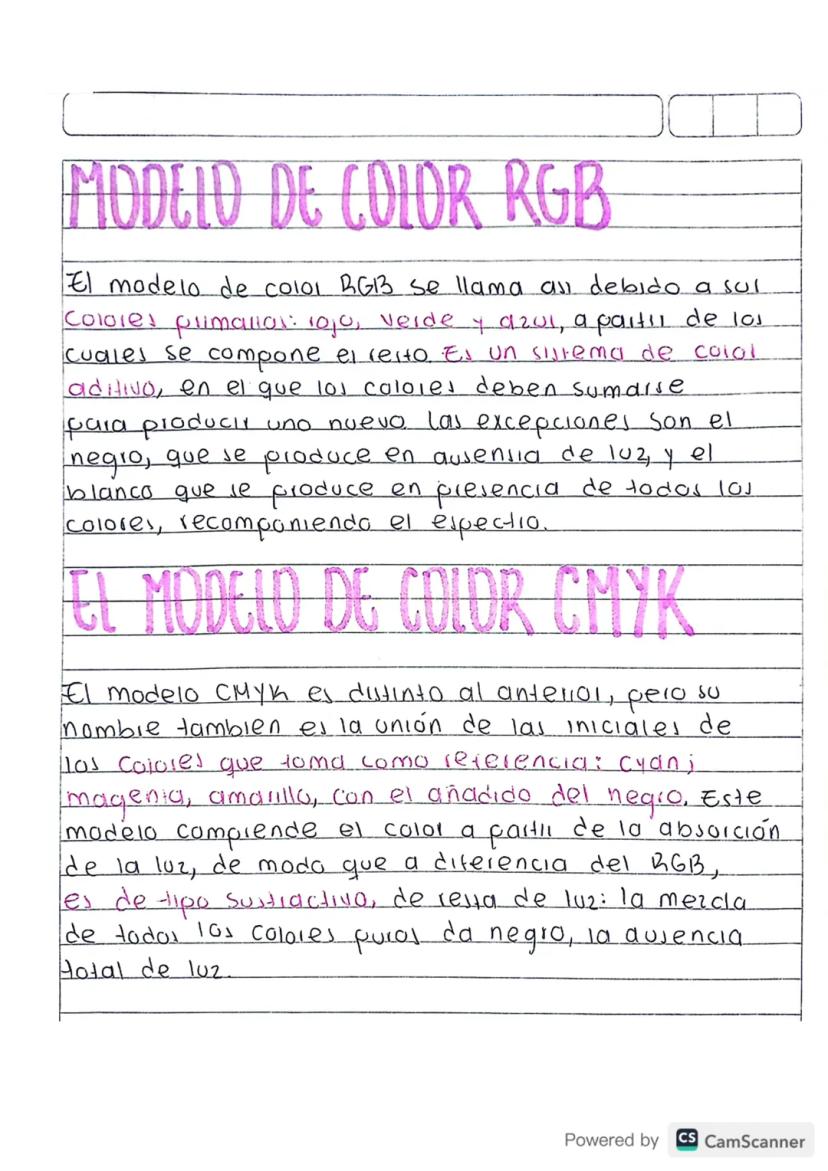 MODELO DE COLOR RGB
El modelo de color RGB se llama asi debido a sus
colores primarios: rojo, verde y azul, a partir de los
cuales se compone el resto. Es un sistema de color
aditivo, en el que los colores deben sumarse
para producir uno nuevo. las excepciones son el
negro, que se produce en ausensia de luz, y el
blanco que se produce en presencia de todos los
colores, recomponiendo el espectro.
EL MODELO DE COLOR CMYK
El modelo CMYK es distinto al anterior, pero su
nombre tambien es la unión de las iniciales de
los colores que toma como referencia: cyan;
magenta, amarillo, con el añadido del negro. Este
modelo comprende el color a partir de la absorción
de la luz, de modo que a diferencia del RGB,
es de tipo sustractivo, de resta de luz: la mezcla
de todos los colores puros da negro, la ausencia
total de luz.
Powered by CS CamScanner